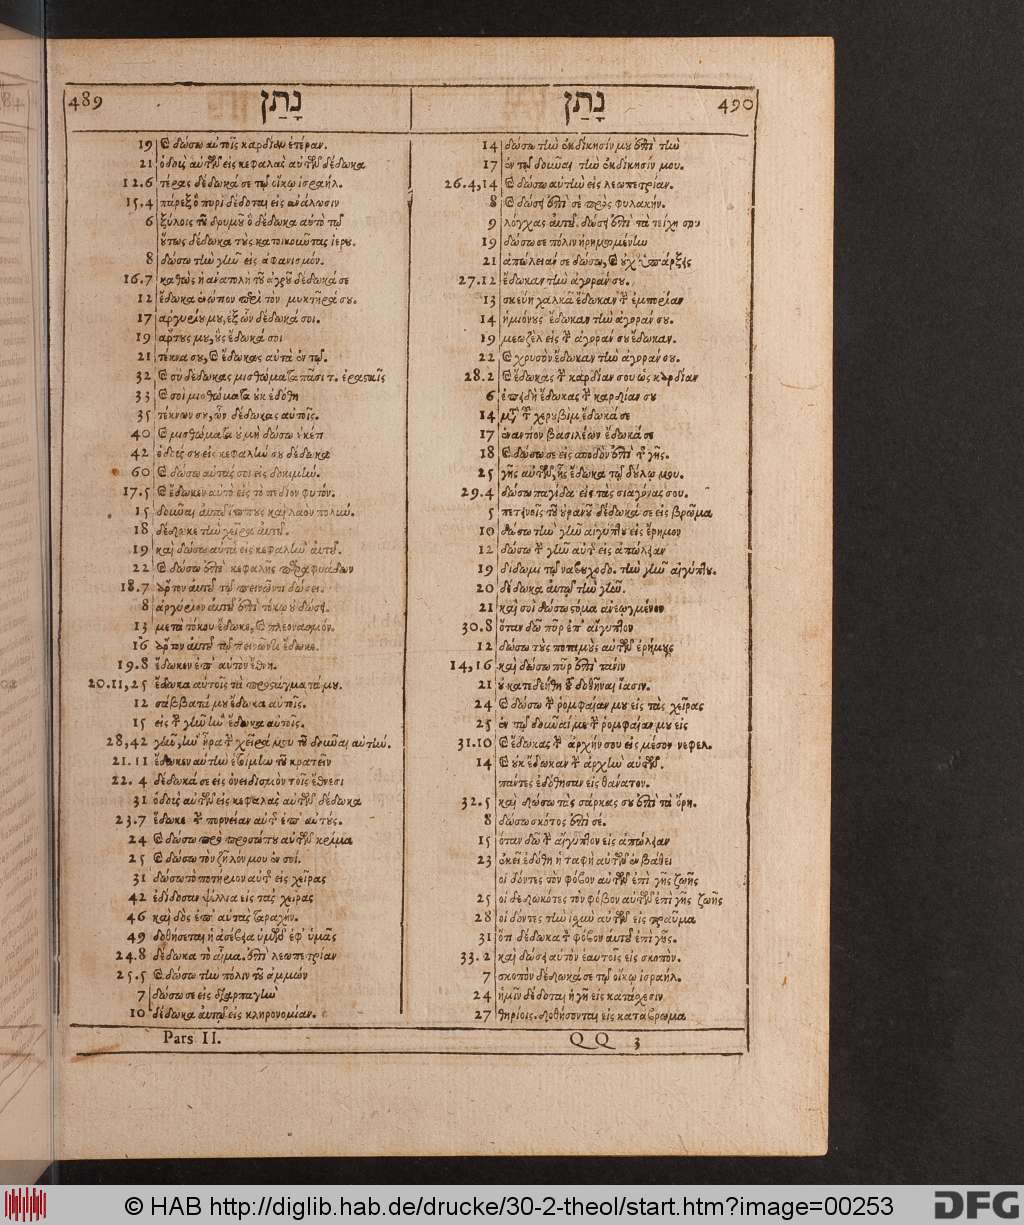 489 נָתַן
19 καὶ δώσω αὐτοῖς καρδίαν ἑτέραν.
21 ὁδοὺς αὐτῶν εἰς κεφαλὰς αὐτῶν δέδωκα
12.6 τέρας δέδωκά σε τῷ οἴκῳ ἰσραήλ.
15.4 πάρεξ ὃ πυρὶ δέδοται εἰς ἀνάλωσιν
6 ξύλοις τοῦ δρυμοῦ ὃ δέδωκα αὐτὸ τῷ
οὕτως δέδωκα τοὺς κατοικοῦντας ἱερου.
8 δώσω τὴν γῆν εἰς ἀφανισμόν.
16.7 καθὼς ἡ ἀνατολὴ τοῦ ἀγροῦ δέδωκά σε
12 ἔδωκα ἐνώτιον περὶ τὸν μυκτῆρά σου.
17 ἀργυρίου μου, ἐξ ὧν δέδωκά σοι.
19 ἄρτους μου, οὓς ἔδωκά σοι
21 τέκνα σου, καὶ ἔδωκας αὐτὰ ἐν τῷ.
32 καὶ σὺ δέδωκας μισθώματα πᾶσι τ. ἐρασταῖς
33 καὶ σοὶ μισθώματα οὐκ ἐδόθη
35 τέκνων σου, ὧν δέδωκας αὐτοῖς.
40 καὶ μισθώματα οὐ μὴ δώσω οὐκέτι
42 ὁδοὺς σου εἰς κεφαλήν σου δέδωκα
60 καὶ δώσω αὐτάς σοι εἰς δοκιμήν.
17.5 καὶ ἔδωκεν αὐτὸ εἰς τὸ πεδίον φυτόν.
15 δοῦναι αὐτῷ ἵππους καὶ λαὸν πολύν.
18 δέδωκε τὴν χεῖρα αὐτοῦ.
19 καὶ δώσω αὐτὰ εἰς κεφαλὴν αὐτοῦ.
22 καὶ δώσω ἀπὸ κεφαλῆς παραφυάδων
18.7 ἄρτον αὐτοῦ τῷ πεινῶντι δώσει.
8 ἀργύριον αὐτοῦ ἐπὶ τόκῳ οὐ δώσῃ.
13 μετὰ τόκου ἔδωκε, καὶ πλεονασμόν.
16 ἄρτον αὐτοῦ τῷ πεινῶντι ἔδωκε.
19.8 ἔδωκεν ἐπ' αὐτὸν ἔθνη.
20.11,25 ἔδωκα αὐτοῖς τὰ προστάγματά μου.
12 σάββατά μου ἔδωκα αὐτοῖς.
15 εἰς τὴν γῆν ἣν ἔδωκα αὐτοῖς.
28,42 γῆν, ἣν ἦρα τὴν χεῖρά μου τοῦ δοῦναι αὐτήν.
21.11 ἔδωκεν αὐτὴν ἑτοίμην τοῦ κρατεῖν
22. 4 δέδωκά σε εἰς ὀνειδισμὸν τοῖς ἔθνεσι
31 ὁδοὺς αὐτῶν εἰς κεφαλὰς αὐτῶν δέδωκα
23.7 ἔδωκε τὴν πορνείαν αὐτῆς ἐπ' αὐτούς.
24 καὶ δώσω πρὸ προσώπου αὐτῶν κρίμα
25 καὶ δώσω τὸν ζῆλόν μου ἐν σοί.
31 δώσω τὸ ποτήριον αὐτῆς εἰς χεῖρας
42 ἐδίδοσαν ψέλλια εἰς τὰς χεῖρας
46 καὶ δὸς ἐπ' αὐτὰς ταραχήν.
49 δοθήσεται ἡ ἀσέβεια ὑμῶν ἐφ' ὑμᾶς
24.8 δέδωκα τὸ αἷμα. ἐπὶ λεωπετρίαν
25.5 καὶ δώσω τὴν πόλιν τοῦ ἀμμών
7 δώσω σε εἰς διαρπαγήν
10 δέδωκα αὐτῷ εἰς κληρονομίαν.
Pars II.
נָתַן 490
14 δώσω τὴν ἐκδίκησίν μου ἐπὶ τὴν
17 ἐν τῷ δοῦναι τὴν ἐκδίκησίν μου.
26.4,14 καὶ δώσω αὐτὴν εἰς λεωπετρίαν.
8 καὶ δώσῃ ἐπὶ σὲ προφυλακήν.
9 λόγχας αὐτοῦ. δώσῃ ἐπὶ τὰ τείχη σου
19 δώσω σε πόλιν ἠρημωμένην
21 ἀπώλειάν σε δώσω, καὶ οὐχ ὑπάρξεις
27.12 ἔδωκαν τὴν ἀγοράν σου.
13 σκεύη χαλκᾶ ἔδωκαν τὴν ἐμπορίαν
14 ἡμιόνους ἔδωκαν τὴν ἀγοράν σου.
19 μεωζὲλ εἰς τὴν ἀγοράν σου ἔδωκαν.
22 καὶ χρυσὸν ἔδωκαν τὴν ἀγοράν σου.
28.2 καὶ ἔδωκας τὴν καρδίαν σου ὡς καρδίαν
6 ἐπειδὴ ἔδωκας τὴν καρδίαν σου
14 μετὰ τοῦ χερουβὶμ ἔδωκά σε
17 ἐναντίον βασιλέων ἔδωκά σε
18 καὶ δώσω σε εἰς σποδὸν ἐπὶ τῆς γῆς.
25 γῆς αὐτῶν, ἧς ἔδωκα τῷ δούλῳ μου.
29.4 δώσω παγίδα εἰς τὰς σιαγόνας σου.
5 πετεινοῖς τοῦ οὐρανοῦ δέδωκά σε εἰς βρῶμα
10 δώσω τὴν γῆν αἰγύπτου εἰς ἔρημον
12 δώσω τὴν γῆν αὐτῆς εἰς ἀπώλειαν
19 δίδωμι τῷ ναβουχοδο. τὴν γῆν αἰγύπτου.
20 δέδωκα αὐτῷ τὴν γῆν.
21 καὶ σοὶ δώσω στόμα ἀνεῳγμένον
30.8 ὅταν δῶ πῦρ ἐπ' αἴγυπτον
12 δώσω τοὺς ποταμοὺς αὐτῶν ἐρήμους
14,16 καὶ δώσω πῦρ ἐπὶ τάνιν
21 οὐ κατεδεήθη τοῦ δοθῆναι ἴασιν.
24 καὶ δώσω τὴν ῥομφαίαν μου εἰς τὰς χεῖρας
25 ἐν τῷ δοῦναί με τὴν ῥομφαίαν μου εἰς
31.10 καὶ ἔδωκας τὴν ἀρχήν σου εἰς μέσον νεφελ.
14 καὶ οὐκ ἔδωκαν τὴν ἀρχὴν αὐτῶν.
πάντες ἐδόθησαν εἰς θάνατον.
32.5 καὶ δώσω τὰς σάρκας σου ἐπὶ τὰ ὄρη.
8 δώσω σκότος ἐπὶ σέ.
15 ὅταν δῶ τὴν αἴγυπτον εἰς ἀπώλειαν
23 ἐκεῖ ἐδόθη ἡ ταφὴ αὐτῶν ἐν βάθει
οἱ δόντες τὸν φόβον αὐτῶν ἐπὶ γῆς ζωῆς
25 οἱ δεδωκότες τὸν φόβον αὐτῶν ἐπὶ γῆς ζωῆς
28 οἱ δόντες τὴν ἰσχὺν αὐτῶν εἰς τραῦμα
31 ὅτι δέδωκα τὸν φόβον αὐτοῦ ἐπὶ γῆς.
33.2 καὶ δώσῃ αὐτὸν ἑαυτοῖς εἰς σκοπόν.
7 σκοπὸν δέδωκά σε τῷ οἴκῳ ἰσραήλ.
24 ἡμῖν δέδοται ἡ γῆ εἰς κατάσχεσιν
27 θηρίοις. δοθήσονται εἰς κατάβρωμα
QQ 3
© HAB http://diglib.hab.de/drucke/30-2-theol/start.htm?image=00253
DFG